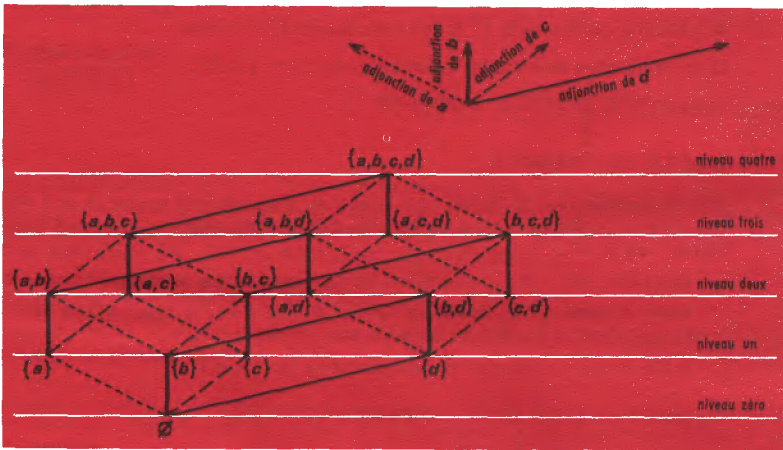 adjonction de a
adjonction de b
adjonction de c
adjonction de d
{a,b,c,d}
niveau quatre
{a,b,c}
{a,b,d}
{a,c,d}
{b,c,d}
niveau trois
{a,b}
{a,c}
{b,c}
{a,d}
{b,d}
{c,d}
niveau deux
{a}
{b}
{c}
{d}
niveau un
Ø
niveau zéro